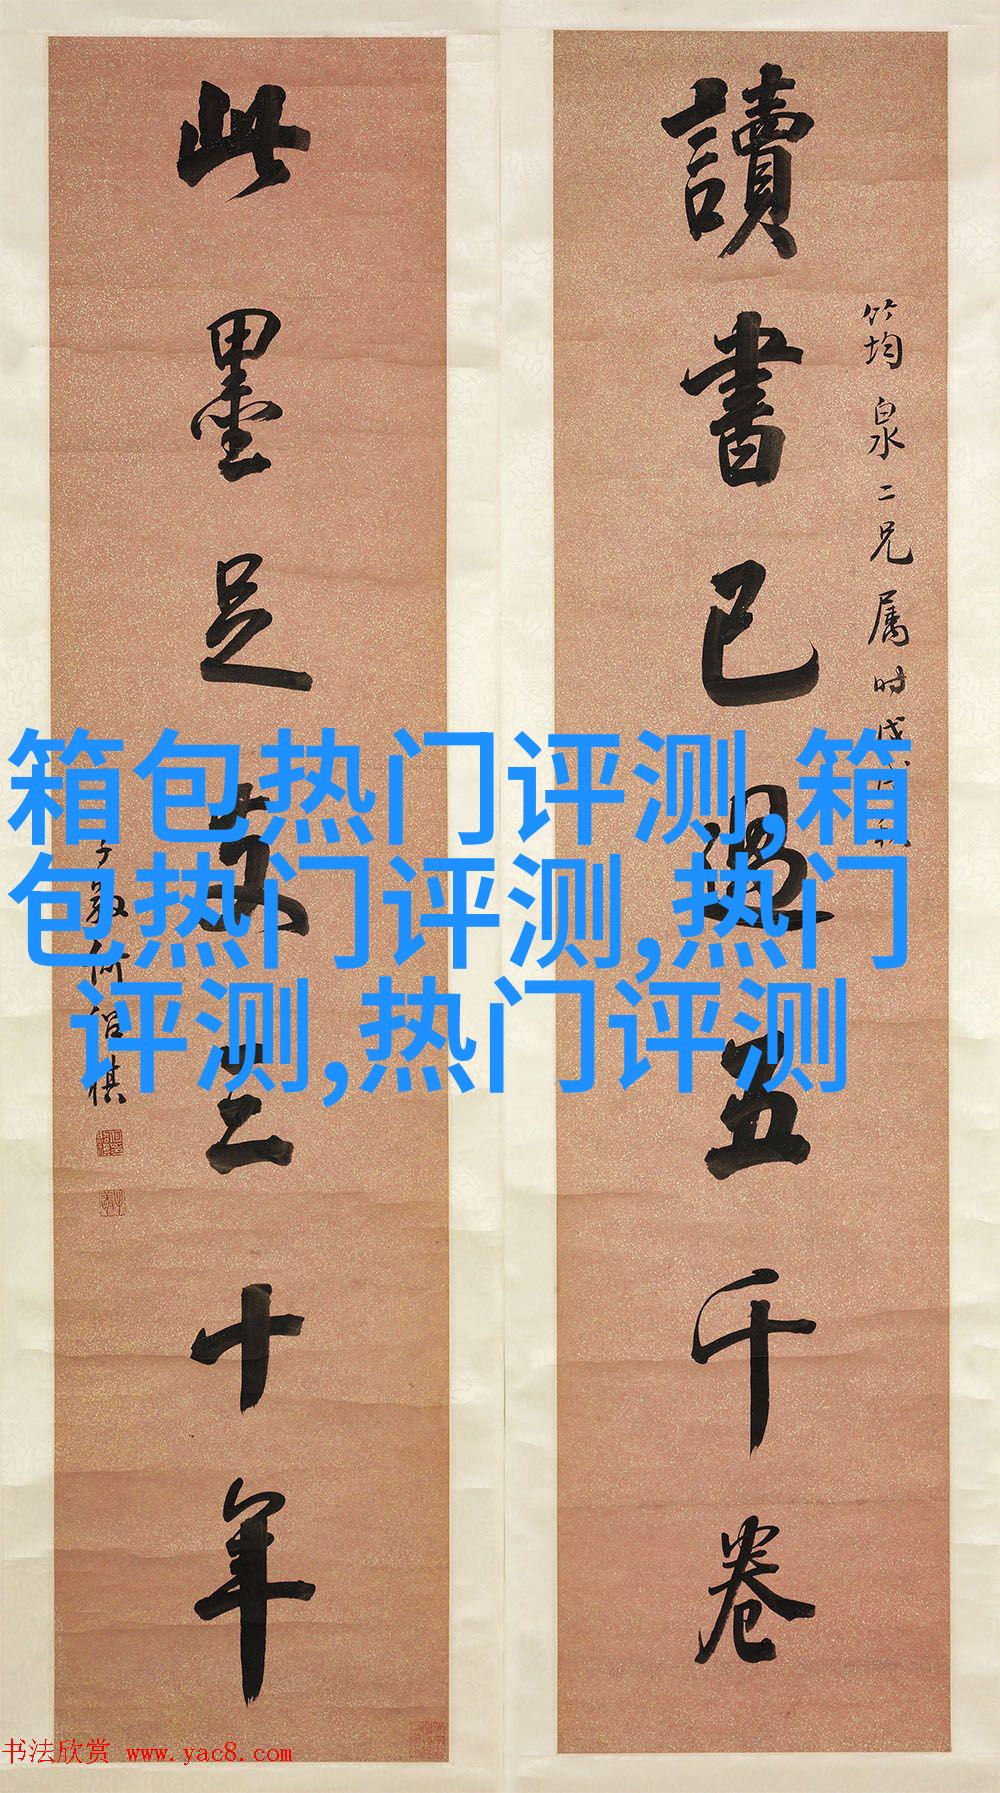 箱包热门评测,箱
包热门评测,热门
评测,热门评测
讀書已過五千卷
竹均泉二兄属时戊
此墨足支三十年
何紹祺
书法欣赏 www.yac8.com